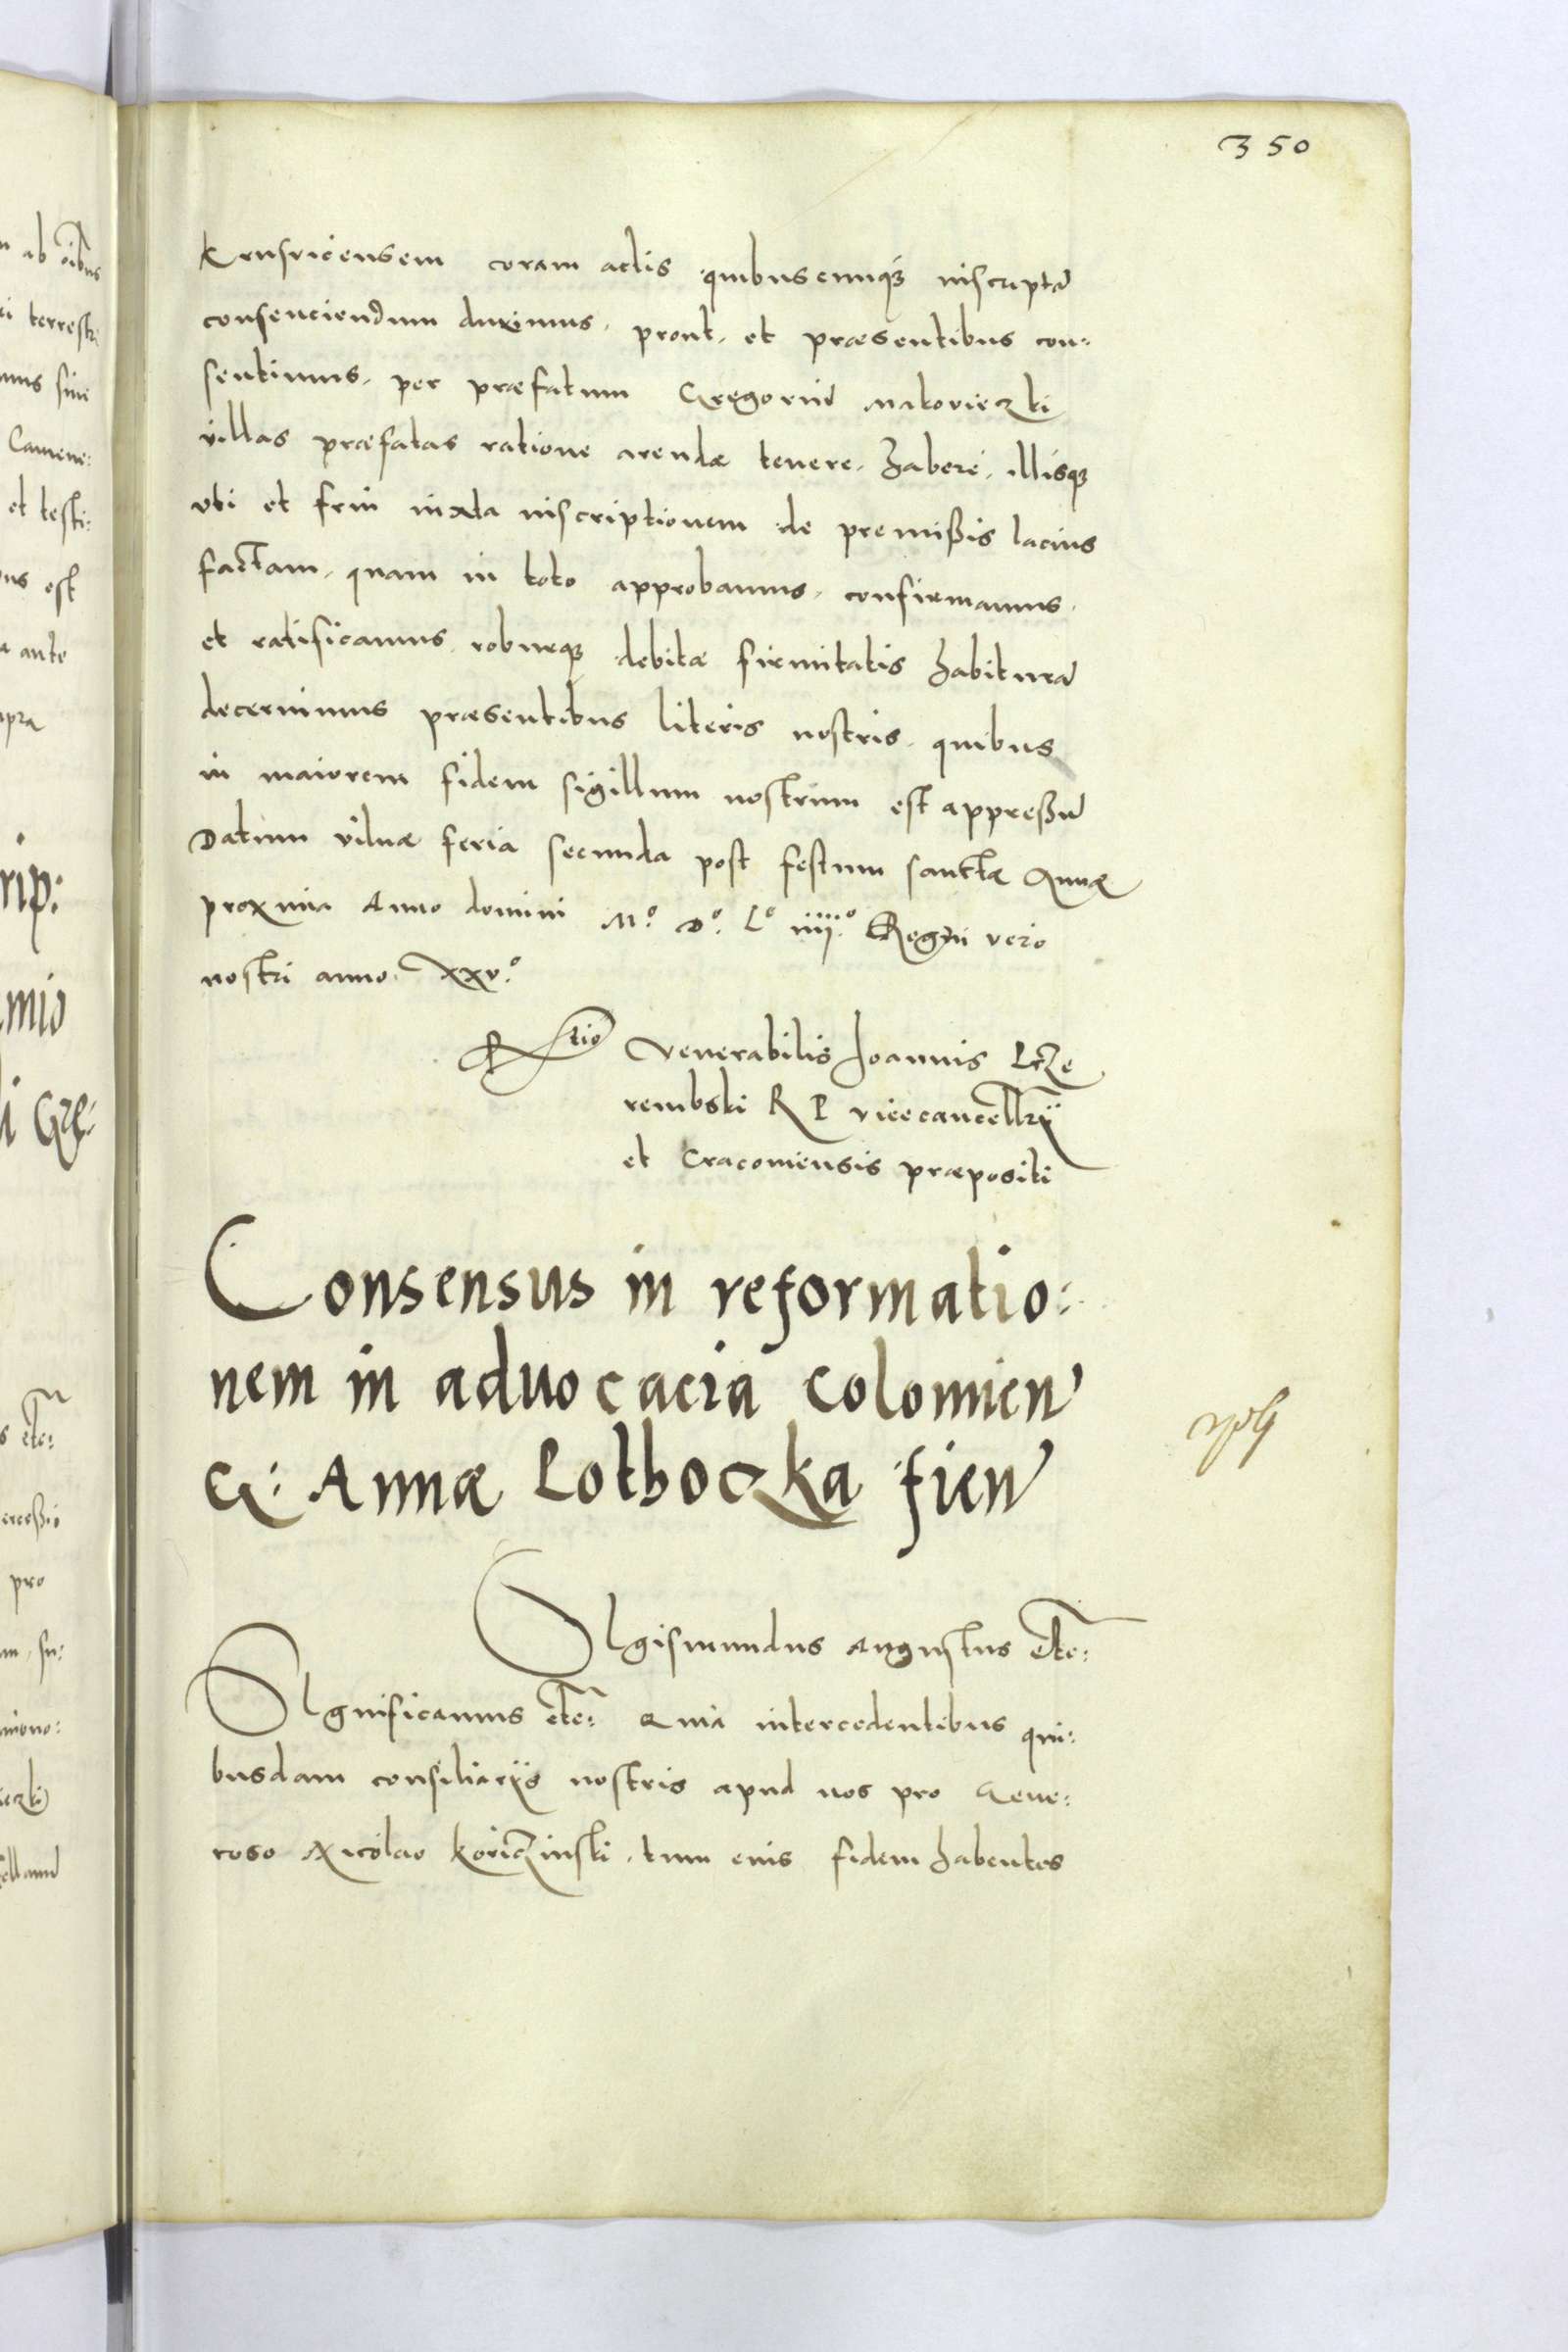 350
coram actis quibuscunque inscriptã
consenciendum duximus. prout. et præsentibus con:
sentimus. per præfatum Gregoriũ Makovieczki
villas præfatas ratione arendæ tenere. habere. illisque
uti et frui iuxta inscriptionem de premißis lacius
factam. quam in toto approbamus. confirmamus.
et ratificamus. roburque debitæ firmitatis habiturã
decernimus præsentibus literis nostris. quibus
in maiorem fidem sigillum nostrum est appreßũ
Datum vilnæ feria secunda post festum sanctæ Annæ
proxima Anno domini Mº. Dº. Lº iiijº. Regni vero
nostri anno. xxvº.
Rtio Venerabilis Joannis Prze
rembski R P vicecancellrÿ
et Cracoviensis præpositi
Consensus in reformatio:
nem in advocacia Colomien
G: Annæ Pothoczka fien
SIgismundus Augustus etc:
SIgnificamus etc: Quia intercedentibus qui:
busdam consiliarÿs nostris apud nos pro Gene:
roso Nicolao Koriczinski. tum eius fidem habentes